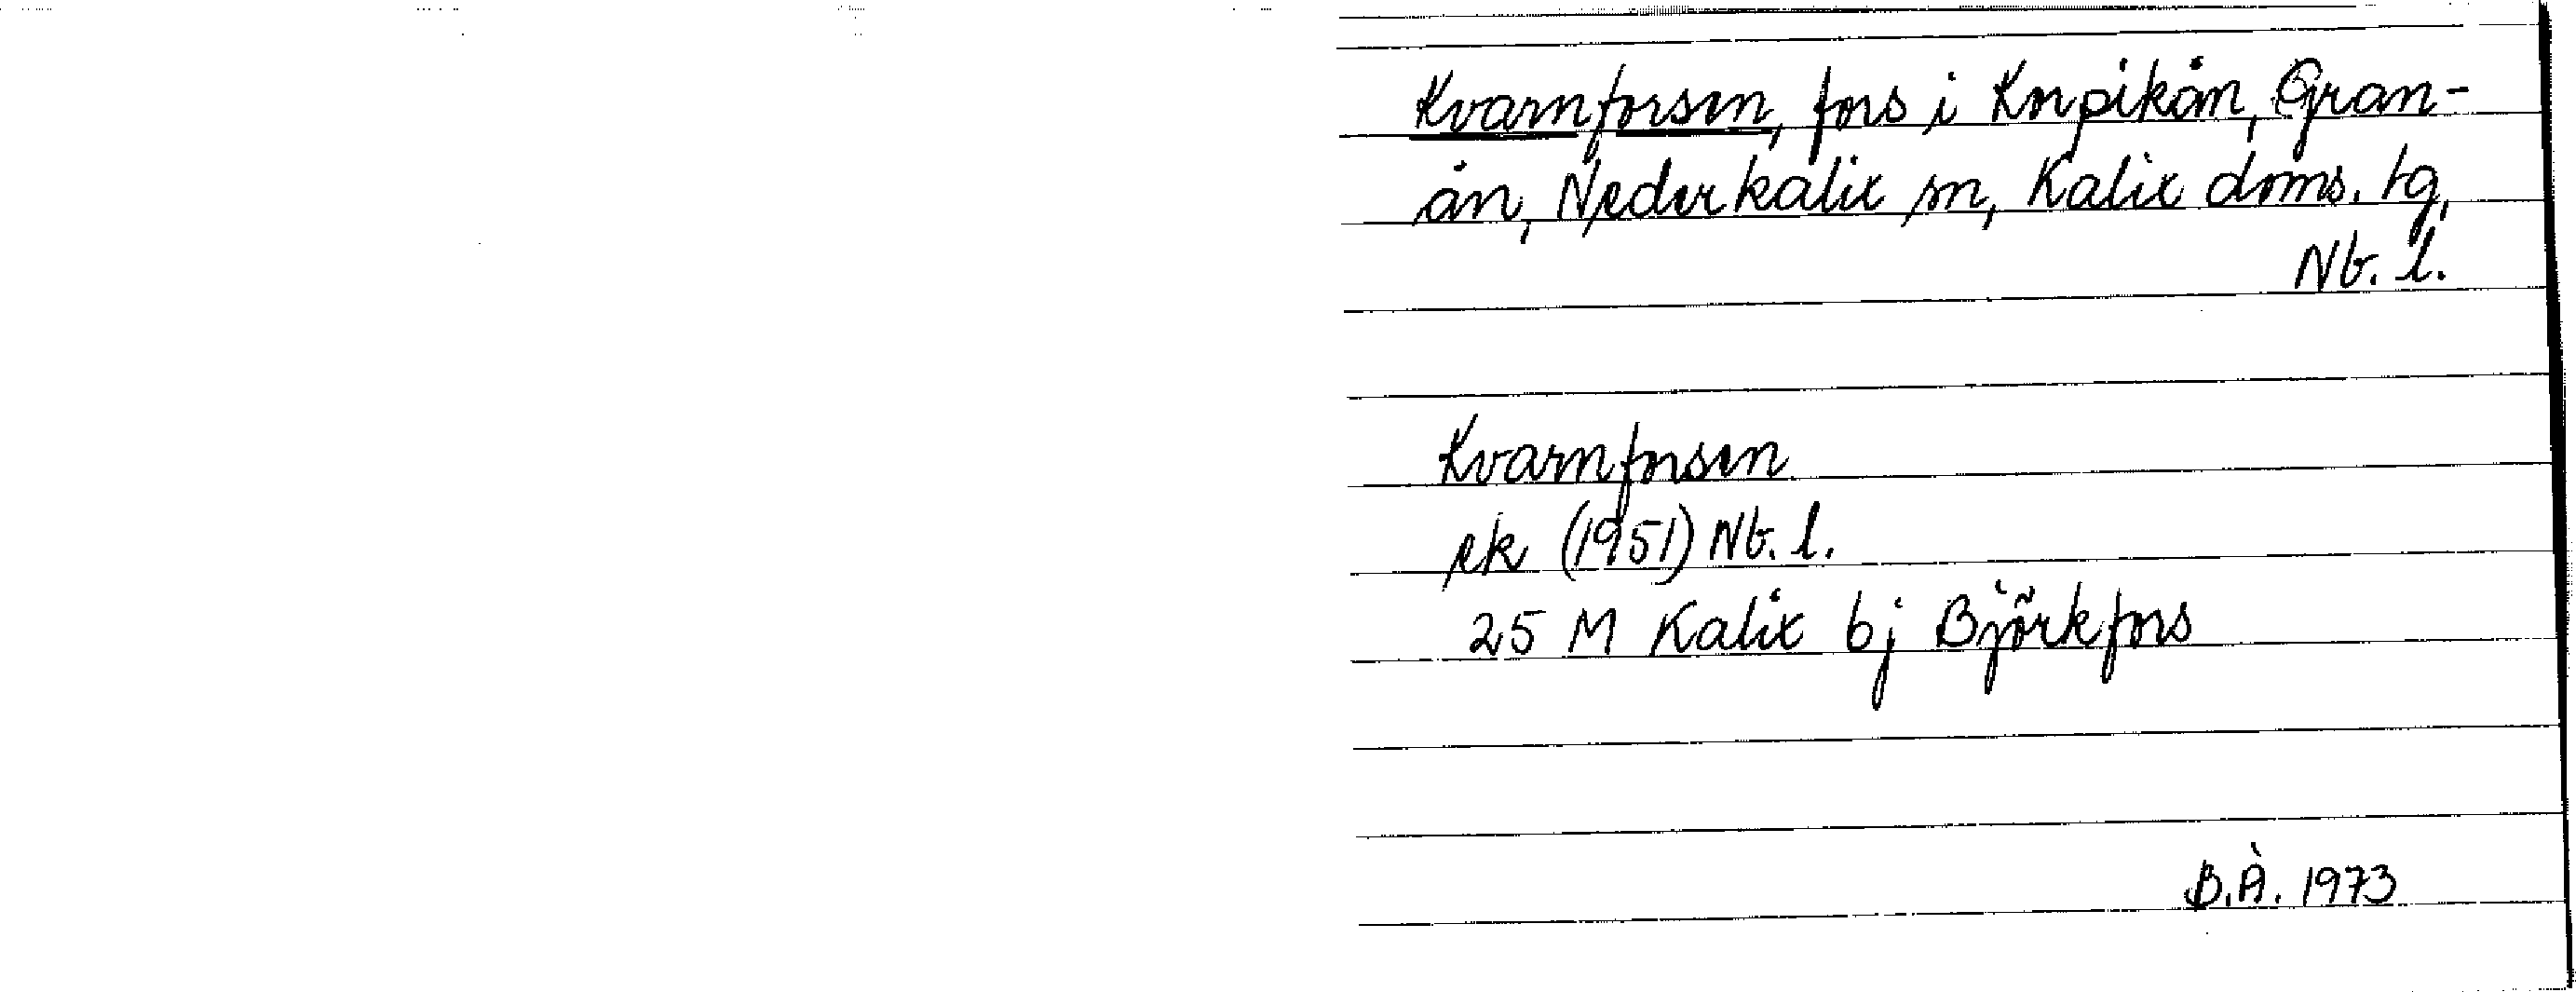 Kvarnforsen, fors i Korpikån, Gran-
ån, Nederkalix sn, Kalix doms. tg,
Nb. l.
Kvarnforsen
ek (1951) Nb. l.
25 M Kalix bj Björkfors
B.Å. 1973